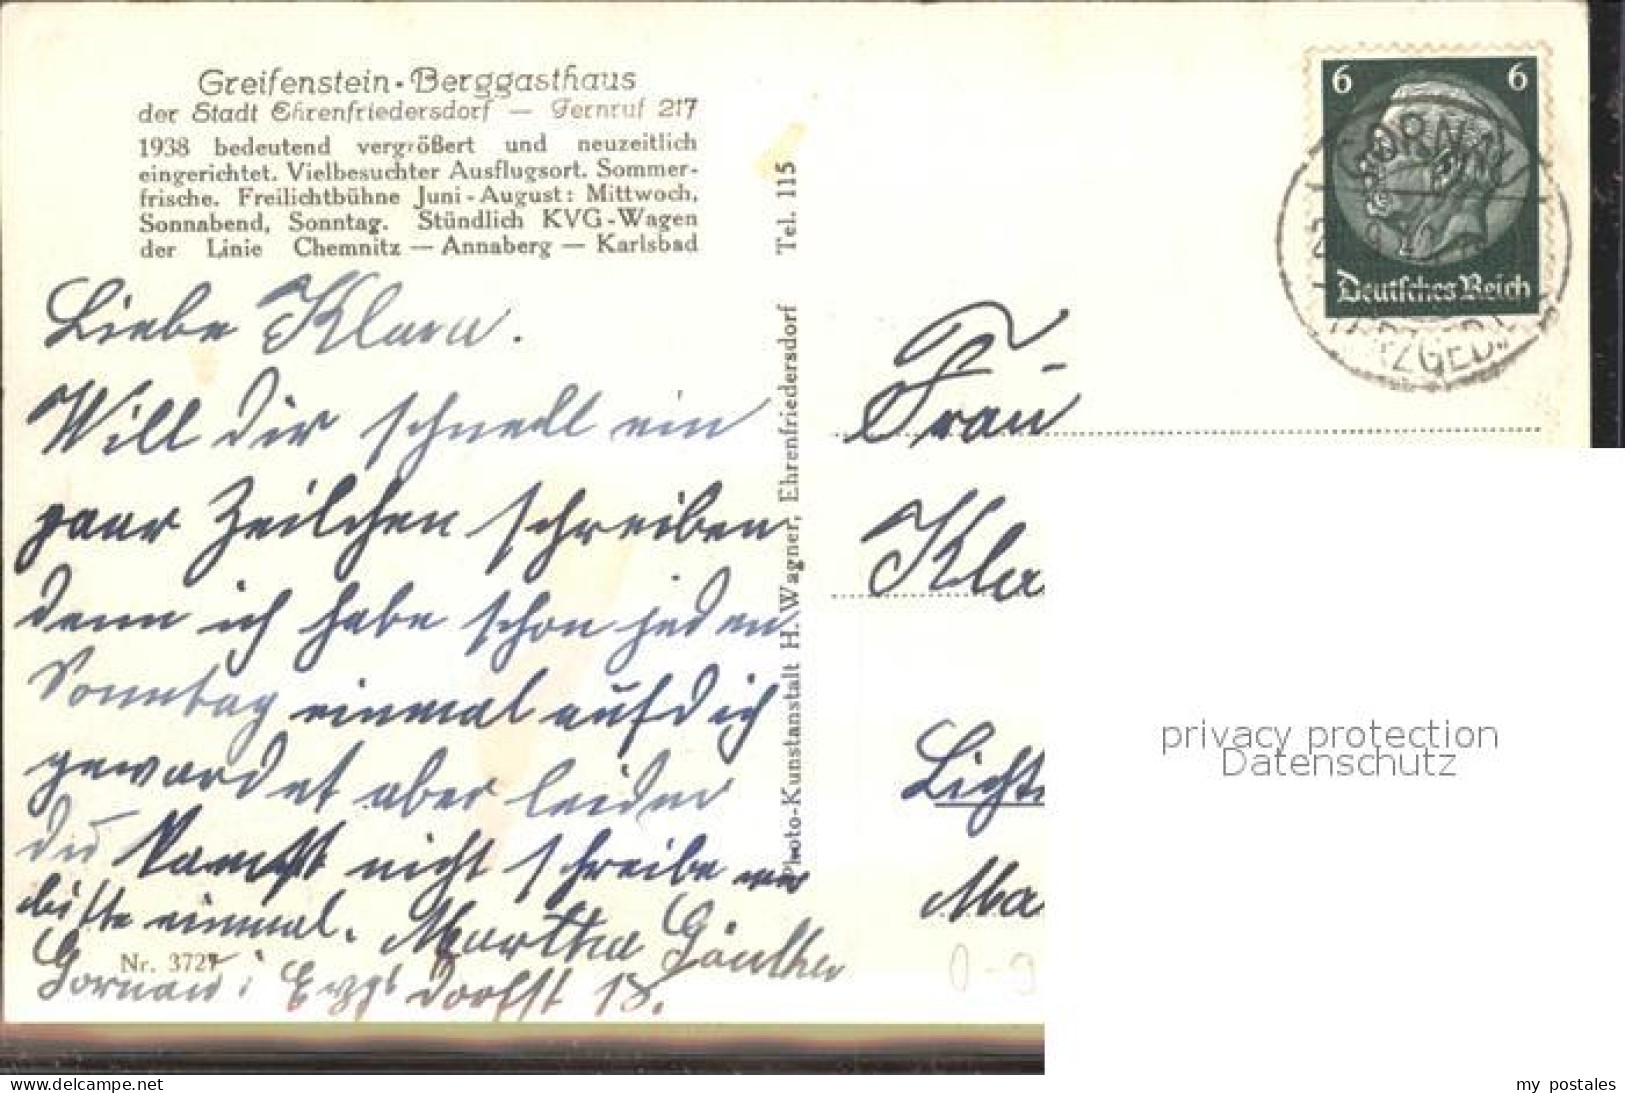 Greifenstein-Berggasthaus
der Stadt Ehrenfriedersdorf — Fernruf 217
1938 bedeutend vergrößert und neuzeitlich
eingerichtet. Vielbesuchter Ausflugsort. Sommer-
frische. Freilichtbühne Juni-August: Mittwoch,
Sonnabend, Sonntag. Stündlich KVG-Wagen
der Linie Chemnitz — Annaberg — Karlsbad
Liebe Klara.
Will dir schnell ein
paar Zeilchen schreiben
denn ich habe schon jeden
Sonntag einmal auf dich
gewardet aber leider
du kamst nicht schreibe mer
bitte einmal. Martha Günther
Gornau i Erzgb Dorfst 18.
Nr. 3727
Photo-Kunstanstalt H. Wagner, Ehrenfriedersdorf Tel. 115
6 6
Deutsches Reich
GORNAU
Frau
Kla
Licht
Ma
0-9
privacy protection
Datenschutz
las-ak-land.de
my postales